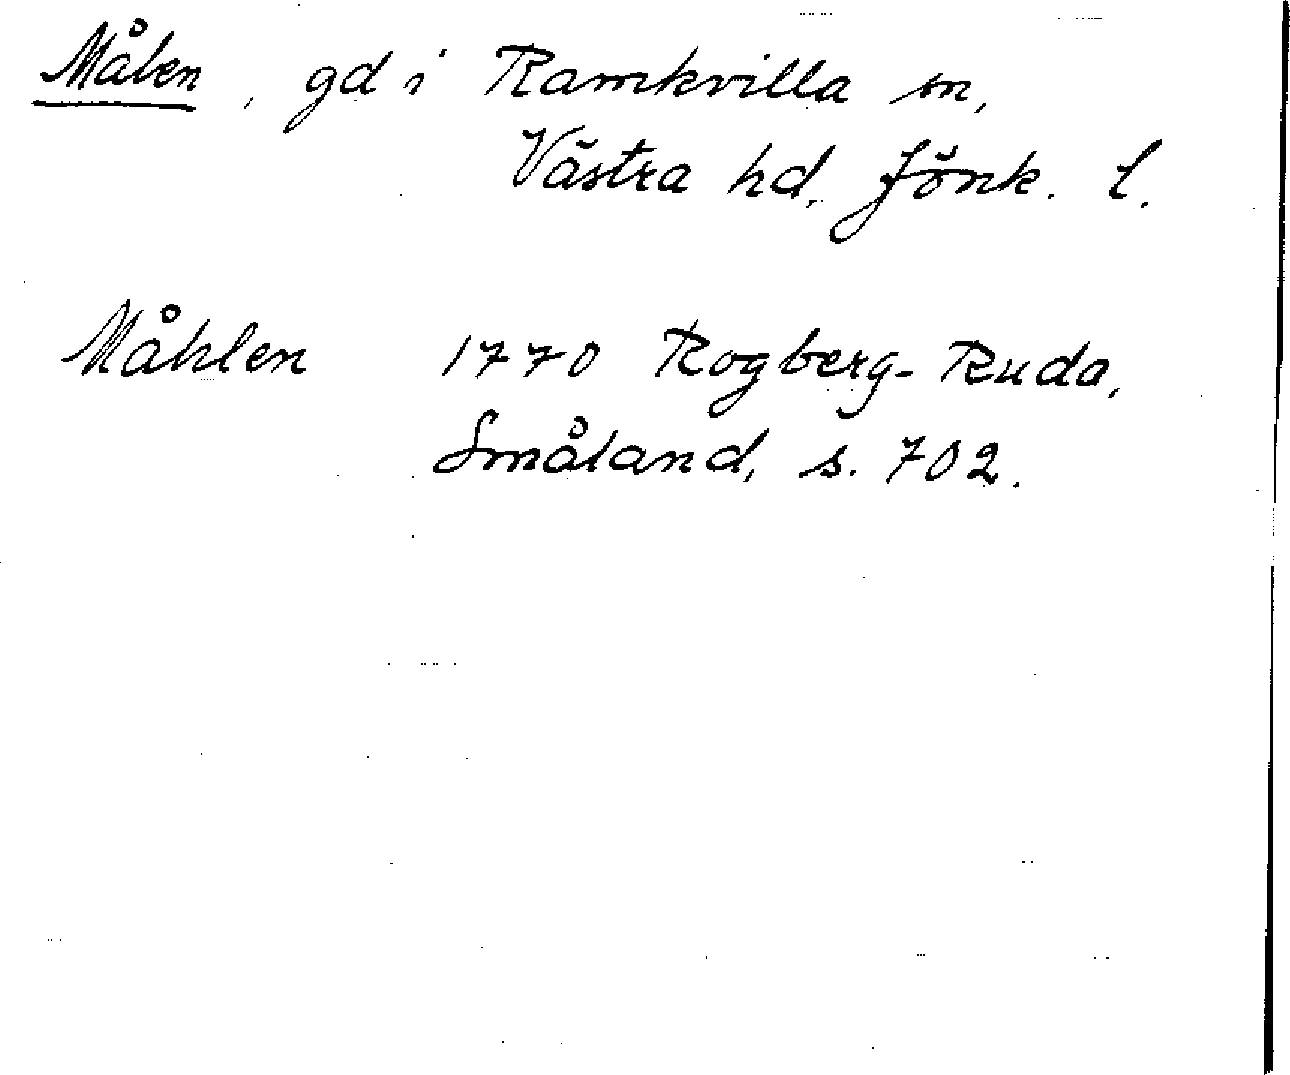 Målen, gd i Ramkvilla sn,
Västra hd, Jönk. l.
Måhlen 1770 Rogberg-Ruda,
Småland, s. 702.